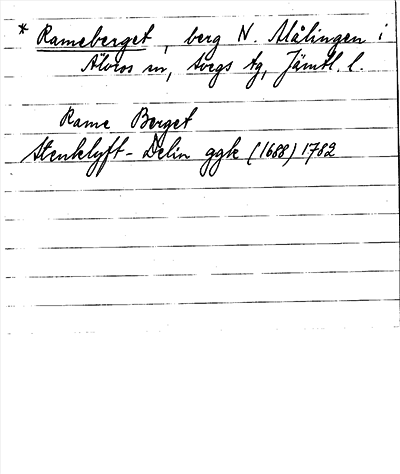 * Rameberget, berg N. Malingen i
Älvros sn, Svegs tg, Jämtl. l.
Rame Berget
Stenklyft - Delin ggk (1688) 1782